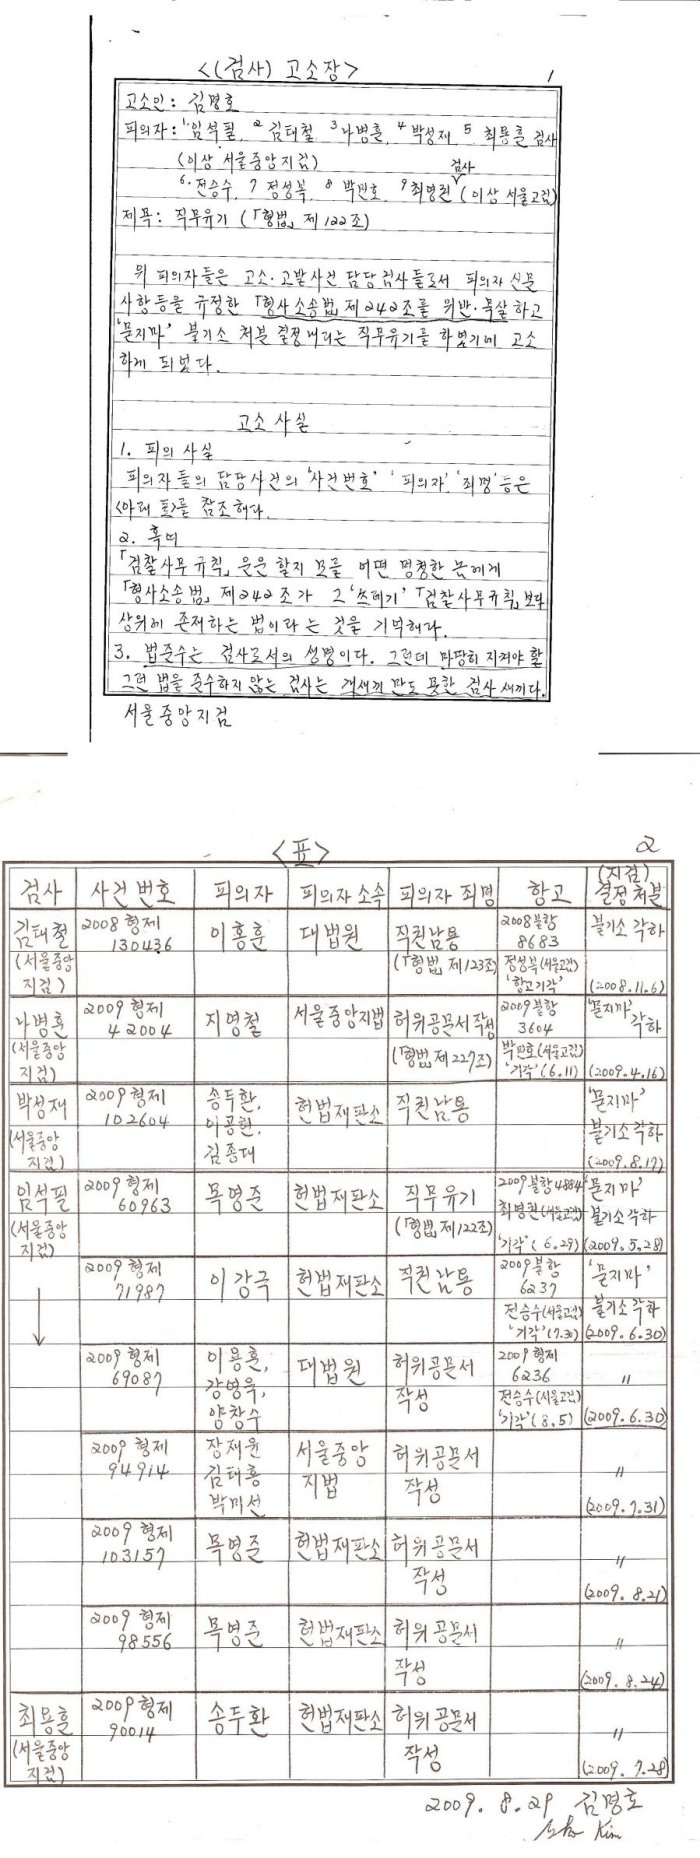 <(검사) 고소장>
1
고소인: 김명호
피의자: 1.임석필, 2 김태철 3 나병훈, 4 박성재, 5 최용훈 검사
(이상 서울중앙지검)
검사
6. 전승수, 7 정성복, 8 박민호, 9 최명권 (이상 서울고검)
제목: 직무유기 (「형법」 제122조)
위 피의자들은 고소·고발사건 담당검사들로서 피의자 신문
사항등을 규정한 「형사소송법」 제242조를 위반·묵살하고
'묻지마' 불기소 처분 결정내리는 직무유기를 하였기에 고소
하게 되었다.
고소 사실
1. 피의 사실
피의자들의 담당사건의 '사건번호' '피의자' '죄명' 등은
<아래 표>를 참조해라.
2. 혹여
「검찰사무규칙」 운운 할지 모를 어떤 멍청한 놈에게
「형사소송법」 제242조가 그 '쓰레기' 「검찰사무규칙」보다
상위에 존재하는 법이라는 것을 기억해라.
3. 법준수는 검사로서의 생명이다. 그런데 마땅히 지켜야 할
그런 법을 준수하지 않는 검사는 개새끼만도 못한 검사 새끼다.
서울중앙지검
<표>
2
검사 사건번호 피의자 피의자 소속 피의자 죄명 항고 (지검) 결정처분
김태철 2008 형제 이홍훈 대법원 직권남용 2008불항 불기소 각하
130436 8683
(서울중앙 (「형법」 제123조) 정성복(서울고검)
지검) '항고기각' (2008.11.6)
나병훈 2009 형제 지영철 서울중앙지법 허위공문서작성 2009불항 '묻지마'
42004 3604 각하
(서울중앙 (「형법」 제227조) 박민호(서울고검)
지검) '기각'(6.11) (2009.4.16)
박성재 2009 형제 송두환, 헌법재판소 직권남용 '묻지마'
102604 이공현,
(서울중앙 불기소각하
지검) 김종대 (2009.8.17)
임석필 2009 형제 목영준 헌법재판소 직무유기 2009불항4884 '묻지마'
60963 최명권(서울고검)
(서울중앙 (「형법」 제122조) 불기소각하
지검) '기각' (6.29) (2009.5.28)
2009 형제 이강국 헌법재판소 직권남용 2009불항 '묻지마'
71987 6237
전승수(서울고검) 불기소각하
'기각'(7.30) (2009.6.30)
2009 형제 이용훈, 대법원 허위공문서 2009형제 〃
69087 강병욱, 작성 6236
양창수 전승수(서울고검)
'기각'(8.5) (2009.6.30)
2009 형제 장재윤 서울중앙 허위공문서 〃
94914 김태홍 지법 작성
박미선 (2009.7.31)
2009 형제 목영준 헌법재판소 허위공문서 〃
103157 작성
(2009.8.21)
2009 형제 목영준 헌법재판소 허위공문서 〃
98556 작성
(2009.8.24)
최용훈 2009 형제 송두환 헌법재판소 허위공문서 〃
90014
(서울중앙 작성
지검) (2009.7.28)
2009. 8.29 김명호
Kim